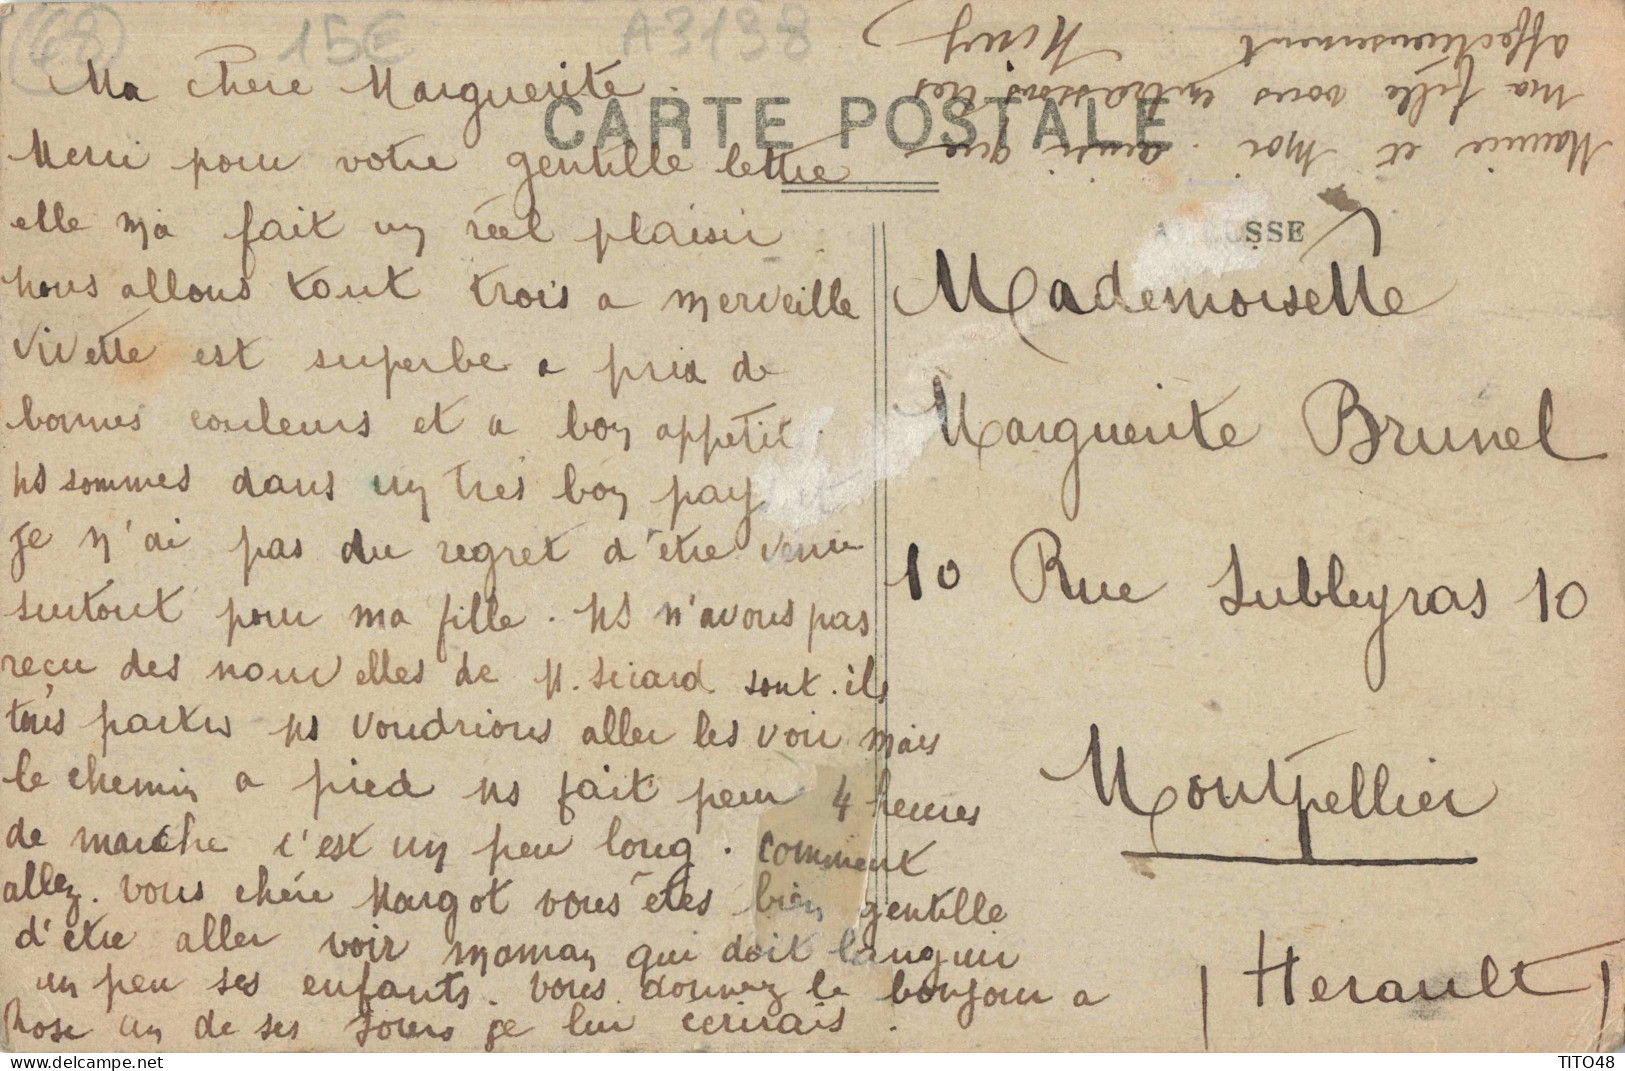 68
15€
A3198
CARTE POSTALE
Ma chere Marguerite.
Merci pour votre gentille lettre
elle m'a fait un réel plaisir
nous allons tout trois a merveille
Vivette est superbe a pris de
bonnes couleurs et a bon appétit.
ns sommes dans un tres bon pays et
je n'ai pas du regret d'être venu
surtout pour ma fille. Ns n'avons pas
reçu des nouvelles de M. Sicard sont-ils
tous partis ns voudrions aller les voir mais
le chemin a pied ns fait peur 4 heures
de marche c'est un peu long. comment
allez-vous chère Margot vous êtes bien gentille
d'etre aller voir maman qui doit languir
un peu ses enfants. Vous donnez le bonjour a
Rose un de ses jours je lui ecrirais.
Maurice et Moi ainsi que
ma fille vous embrassons tres
affectueusement
SSE
Mademoiselle
Marguerite Brunel
10 Rue Subleyras 10
Montpellier
(Herault)
TITO48